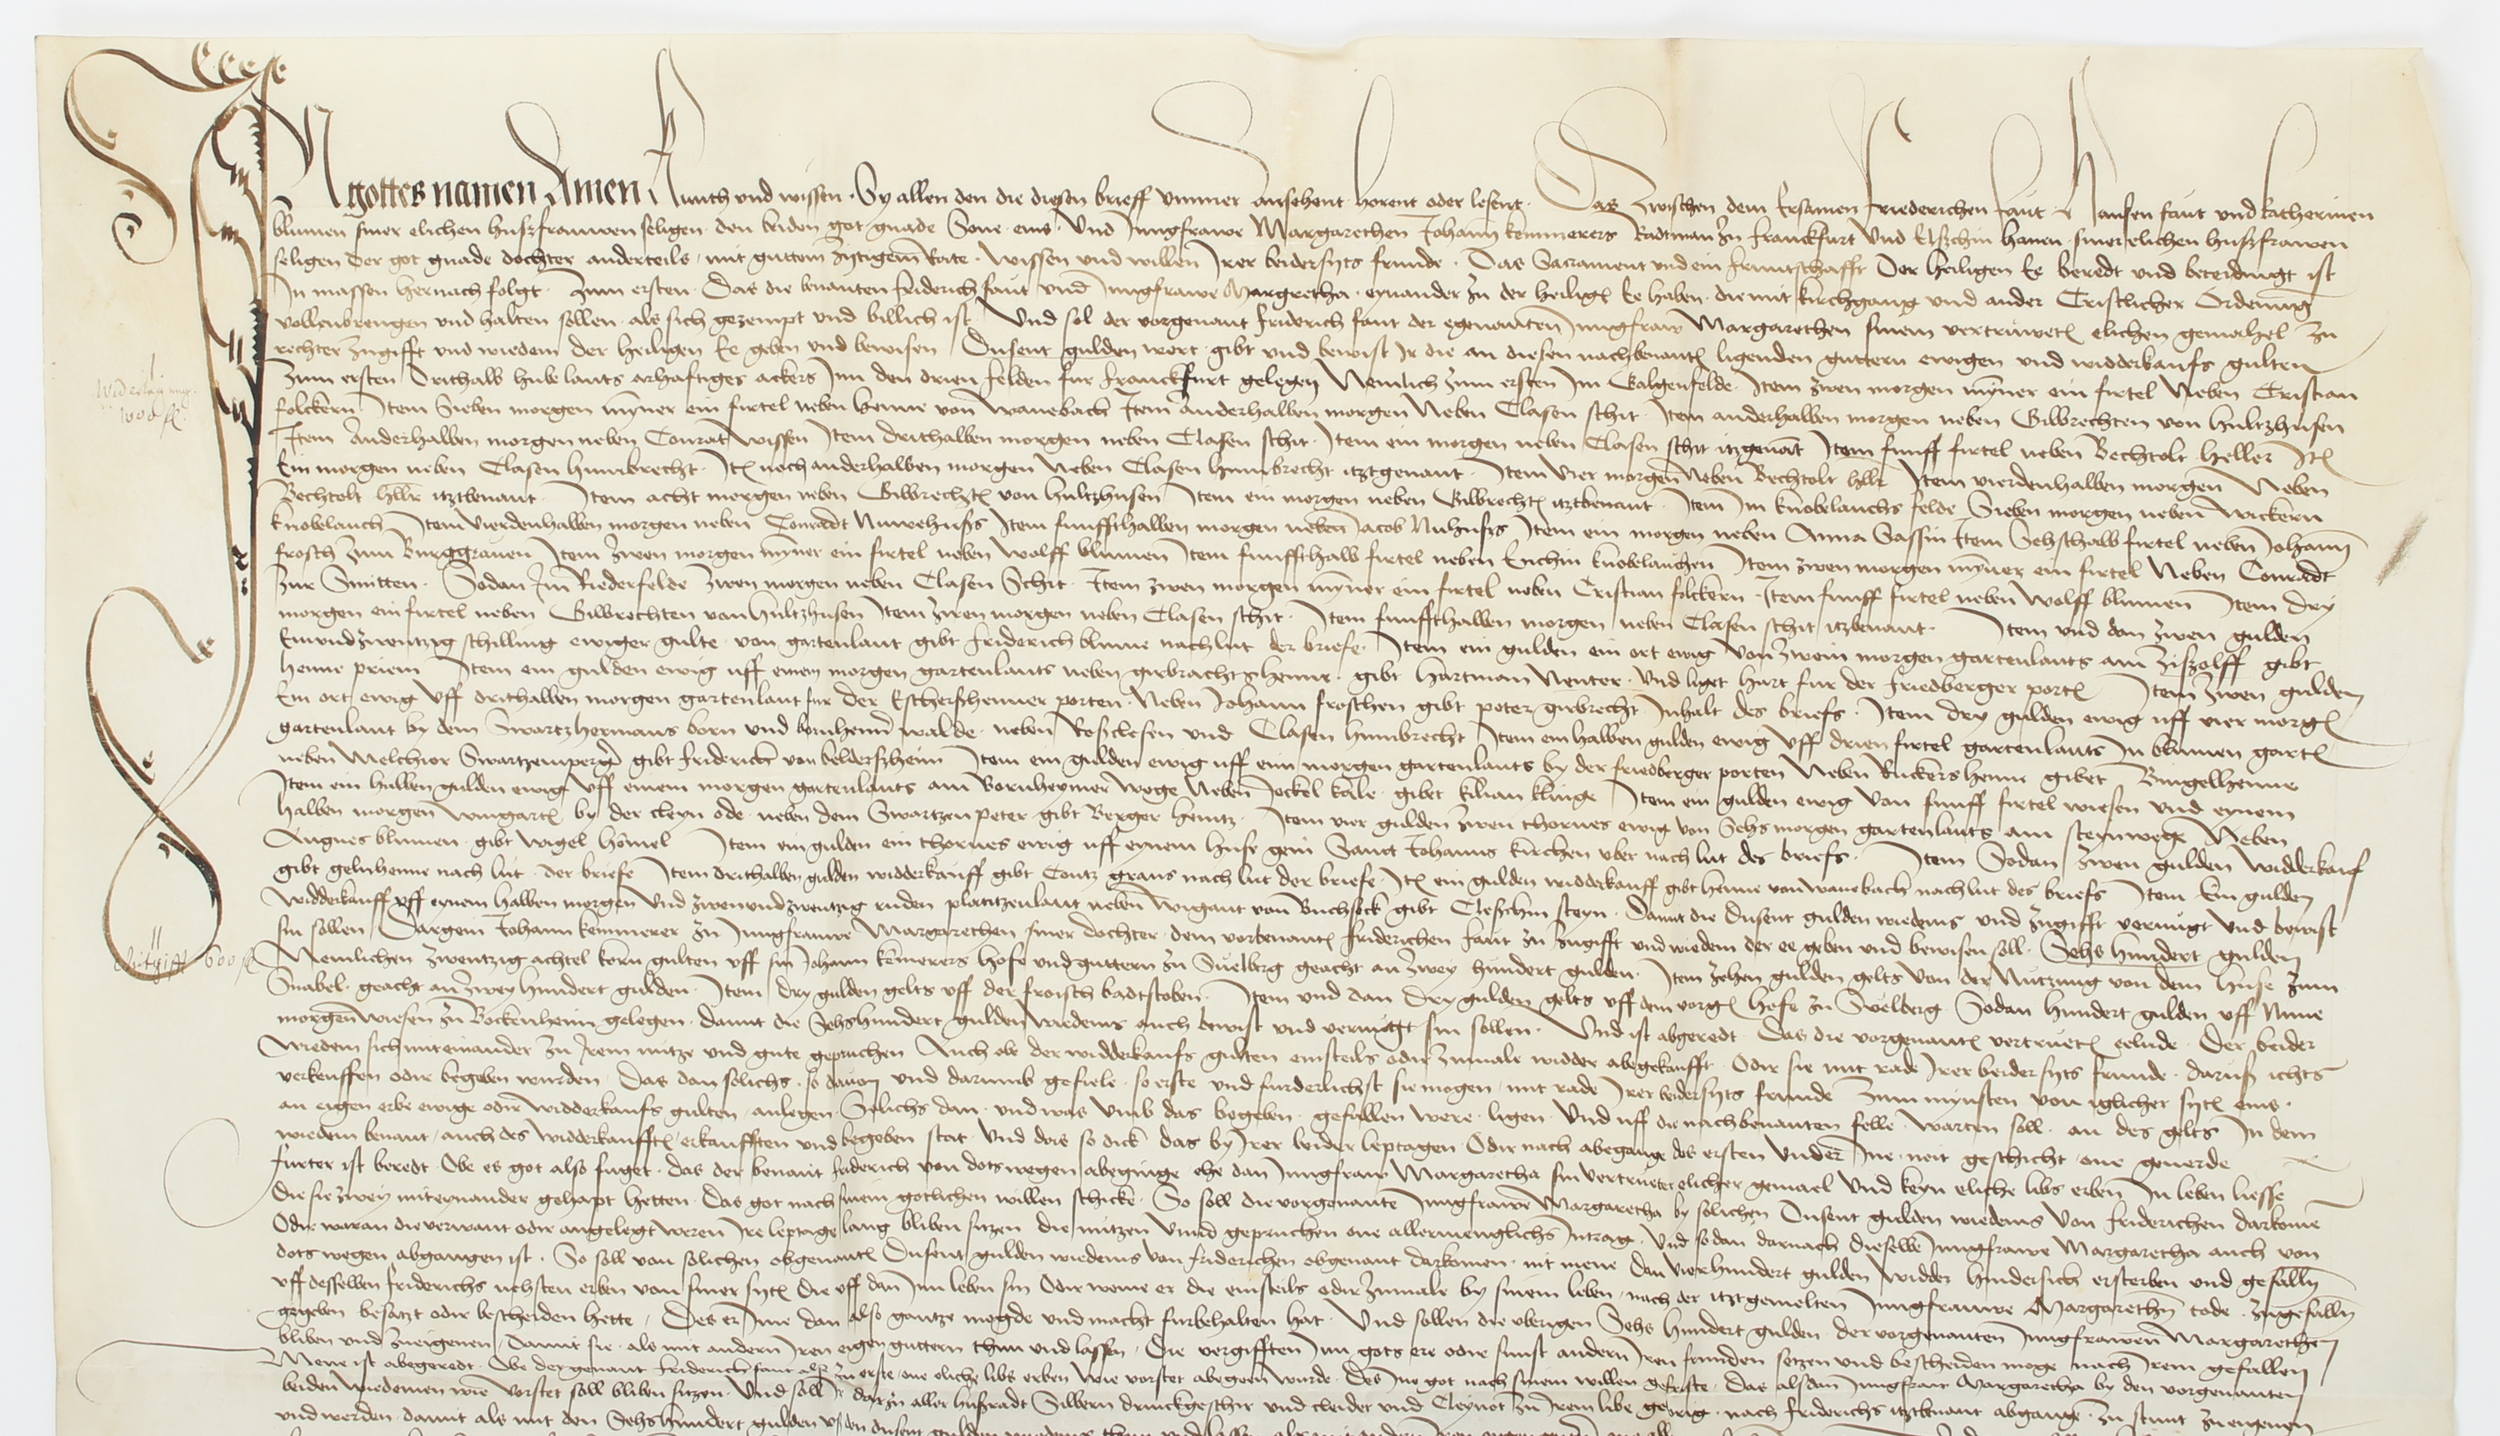 IN gottes namen Amen Kunth und wissen Sy allen den die diesen brieff ummer ansehent horent oder lesent Das Zwischen dem Ersamen Friederichen Faut Hansen faut und katherinen
blumen siner elichen huszfrauwen seligen den beiden got gnade Sone eins Und Jungfrauwe Margarethen Johann kemmerers Radtman zu franckfurt Und siner elichen huszfrawen
seligen der got gnade dochter anderteils mit guttem zytigem Rate wissen und willen Irer beidersyts frunde Das Sacrament und ein fruntschafft Der heiligen Ee beredt und beteidingt ist
In massen hernach folgt Zum ersten Das die benanten friderich faut und Jungfrauwe Margretha eynander zu der heilig Ee haben die mit kirchgang und ander Cristlicher Ordenung
vollenbrengen und halten sollen als sich gezempt und billich ist Und sol der vorgenant friderich faut der egenanten Jungfraw Margarethen sinem vertruwet elichen gemahel zu
rechter zugifft und wiedem der heiligen Ee geben und bewisen Dusent gulden wert gibt und bewist Ir die an diesen nachbenant ligenden guttern ewigen und widderkaufs gulten
Zum ersten Drithalb hube lants arhafftiges ackers Inn den drien felden fur franckfurt gelegen Nemlich zum ersten Im Galgenfelde Item zwen morgen myner ein firtel Neben Cristian
folckern Item Sieben morgen myner ein firtel neben henne von wanebach Item anderhalben morgen Neben Clasen schit Item anderhalben morgen neben Gilbrechten von hultzhusen
Item Anderhalben morgen neben Conrat wissen Item drithalben morgen neben Clasen schit Item ein morgen neben Clasen schit itzgenant Item funff firtel neben Bechtolt heller It
Ein morgen neben Clasen humbrecht It noch anderhalben morgen Neben Clasen humbrecht itztgenant Item vier morgen Neben Bechtolt hllr Item vierdenhalben morgen Neben
Bechtolt hllr itztbenant Item acht morgen neben Gilbrecht von hultzhusen Item ein morgen neben Gilbrecht itztbenant Item Im knobelauchs felde Sieben morgen neben wickern
knobelauch Item vierdenhalben morgen neben Conradt Nuwehusz Item funffthalben morgen neben Jacob Nuhusz Item ein morgen neben Anna Sassin Item Sehsthalb firtel neben Johann
frosch zum Burggrauen Item zwen morgen myner ein firtel neben wolff blumen Item funffthalb firtel neben knobelauchen Item zwen morgen myner ein firtel Neben Conradt
zur Smitten Sodan Im Riederfelde zwen morgen neben Clasen Schit Item zwen morgen myner ein firtel neben Cristian folckern Item funff firtel neben wolff blumen Item dry
morgen ein firtel neben Gilbrechten von hultzhusen Item zwen morgen neben Clasen schit Item funffthalben morgen neben Clasen schit itzbenant Item und dan zwen gulden
Einundzwentzig schilling ewiger gulte von gartenlant gibt friderich blume nach lut der briefe Item ein gulden ein ort ewig von zwein morgen gartenlants am gibt
henne priem Item ein gulden ewig uff einem morgen gartenlants neben henne gibt hartman Und liget hart fur der friedberger port Item zwen gulden
Ein ort ewig uff drithalben morgen gartenlant fur der Eschersheimer porten Neben Johann froschen gibt peter Inhalt des briefs Item dry gulden ewig uff vier morg
gartenlant by dem Swartzhermans born und walde neben und Clasen humbrecht Item ein halben gulden ewig uff drien firtel gartenlants In blumen gart
neben Melchior gibt friderich von Item ein gulden ewig uff eim morgen gartenlants by der friedberger porten Neben Ruckers henne gibet
Item ein halben gulden ewig uff einem morgen gartenlants am Bornheymer wege Neben Jeckel kale gibet kilian klinge Item ein gulden ewig von funff firtel wiesen und eynem
halben morgen wingart by der cleyn ode neben dem Swartzen peter gibt Berger heintz Item vier gulden zwen thornes ewig von Sehs morgen gartenlants am steynwege Neben
Angnes blumen gibt wigel Item ein gulden ein thornes ewig uff eynem huse gein Sanct Johanns kirchen uber nach lut des briefs Item Sodan zwen gulden widderkauf
gibt nach lut der briefe Item drithalben gulden widderkauff gibt Contz nach lut der briefe It ein gulden widderkauff gibt henne von wanebach nach lut des briefs Item Ein gulden
widderkauff uff eynem halben morgen Und zwenundzwentzig ruden neben wigant von Buchseck gibt steyn Damit die Dusent gulden wiedems und zugifft vernugt Und bewist
sin sollen Dargein Johann kemmerer zu Jungfrauwe Margarethen siner dochter dem vorbenant friderichen faut zu zugifft und wiedem der ee geben und bewisen soll Sehs hundert gulden
Nemlichen zwentzig achtel korn gulten uff sin Johann kemmerers hofe und guttern zu geacht an zwey hundert gulden Item zehen gulden gelts von der Nutzung von dem huse zum
Snabel geacht an zwey hundert gulden Item dry gulden gelts uff der frosch badtstoben Item und dan dry gulden gelts uff dem vorg hofe zu Sodan hundert gulden uff Nune
morgen wiesen zu Bockenheim gelegen damit die Sehshundert gulden wiedems auch bewist und vernugt sin sollen Und ist abgeredt Das die vorgenant vertruet eelude Der beider
wiedem sich miteinander zu Irem nutze und gute gepruchen Auch ob der widderkaufs gulten einsteils oder zumale widder abegekaufft Oder sie mit rade Irer beidersyts frunde darusz ichts
verkeuffen oder begeben wurden Das dan solichs so dauon und darumb gefiele so erste und furderlichst sie mogen mit rade Irer beidersyts frunde Zum mynsten von iglicher syt eins
an eigen erbe ewige oder widderkaufs gulten anlegen Solichs dan und was umb das begeben gefallen were ligen Und uff die nachbenanten felle warten soll an des gelts In dem
wiedem benant auch des widderkaufft erkaufften und begeben stat Und das so dick das by Irer beider leptagen Oder nach abegange des ersten Under Ine neit geschicht one geuerde
furter ist beredt Obe es got also fuget das der benant friderich von dots wegen abeginge ehe dan Jungfraw Margaretha sin vertrueter elicher gemael Und keyn eliche libs erben In leben liesse
die sie zwey miteynander gehapt hetten Das got nach sinem gotlichen willen schicke So soll die vorgenante Jungfrawe Margaretha by solichen Dusent gulden wiedems von friderichen darkomen
Oder waran die verwant oder angelegt weren Ire leptage lang bliben sitzen die nutzen Unnd gepruchen one allermenglichs Intrag Und so dan darnach dieselbe Jungfrauwe Margaretha auch von
dots wegen abgangen ist So soll von solichen obgenant Dusent gulden wiedems von friderichen obgenant darkomen nit mene dan vierhundert gulden widder hindersich ersterben und gefallen
uff desselben friderichs nehsten erben von siner syt die uff dan im leben sin Oder weme er die einsteils oder zumale by sinem leben nach der itztgemelten Jungfrauwe Margarethen tode zugefallen
gegeben besatzt oder bescheiden hette Des er Ime dan also gantze mogde und macht furbehalten hat Und sollen die uberigen Sehs hundert gulden der vorgenanten Jungfrauwen Margarethen
bliben und zueigenen Damit sie als mit andern Iren eigen guttern thun und lassen Die vergifften im gots ere oder sunst andern Iren frunden setzen und bescheiden moge nach Irem gefallen
Mene ist abegeredt Obe der genant friderich faut also zu erste one eliche libs erben wie vorstet abegen wurde Des Ine got nach sinem willen gefriste Das alsdan Jungfraw Margaretha by den vorgenanten
beiden wiedemen wie vorstet soll bliben sitzen Und soll Ir darzu aller huszradt Silbern drinckgeschir und cleider und Cleynot zu Irem libe gehorig nach friderichs itztbenant abgange zu stunt zueigenen
und werden damit als mit den Sehshundert gulden
Widerlegung
1000 fl
Mitgift 600 fl